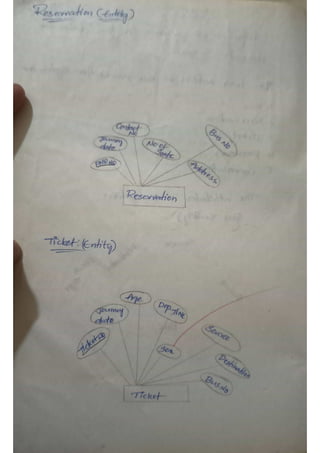 Reservation (Entity)
Contact No
Journey date
No of Seats
Bus No
Address
Reservation
Ticket (Entity)
Age
Journey date
Dep.time
Ticket No
Sex
Source
Destination
Bus No
Ticket